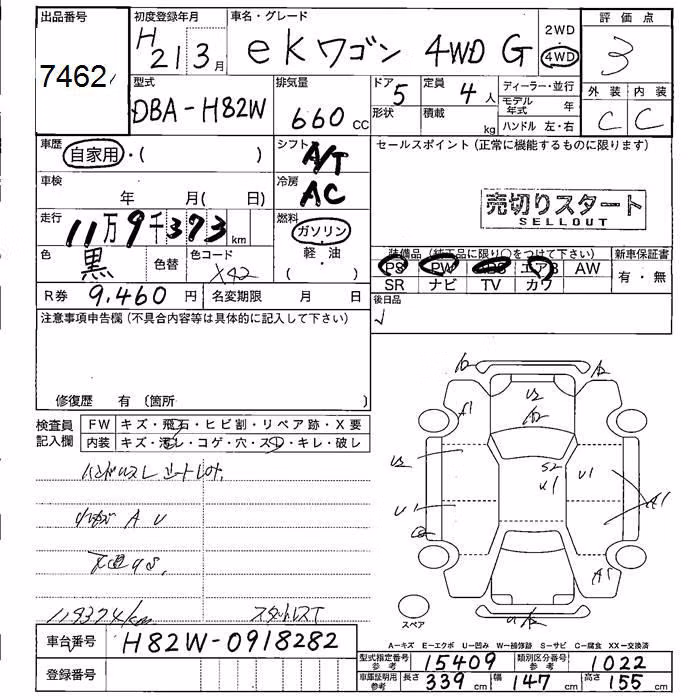 出品番号 初度登録年月 車名・グレード 2WD 評価点
7462 H21 3月 eKワゴン 4WD G 4WD 3
型式 排気量 ドア 定員 ディーラー・並行 外装 内装
DBA-H82W 660cc 5 4人 モデル年式 年 C C
形状 積載 kg ハンドル 左・右
車歴 シフト セールスポイント(正常に機能するものに限ります)
自家用・( ) A/T
車検 冷房
年 月( 日) AC
売切りスタート
SELLOUT
走行 燃料
11万9千373km ガソリン
色 色替 色コード 軽・油
黒 X42 ( )
装備品(純正品に限り○をつけて下さい) 新車保証書
PS PW ABS エアB AW 有・無
SR ナビ TV カワ
R券 9,460円 名変期限 月 日 後日品
注意事項申告欄(不具合内容等は具体的に記入して下さい)
修復歴 有 〔箇所 〕
検査員記入欄 FW キズ・飛石・ヒビ割・リペア跡・X要
内装 キズ・汚レ・コゲ・穴・スレ・キレ・破レ
A1
U2
U1
U1
A1
A1
119374km
スペア
A−キズ E−エクボ U−凹み W−補修跡 S−サビ C−腐食 XX−交換済
車台番号 H82W-0918282
型式指定番号参考 15409 類別区分番号参考 1022
登録番号
車庫証明用参考 長さ 339cm 幅 147cm 高さ 155cm